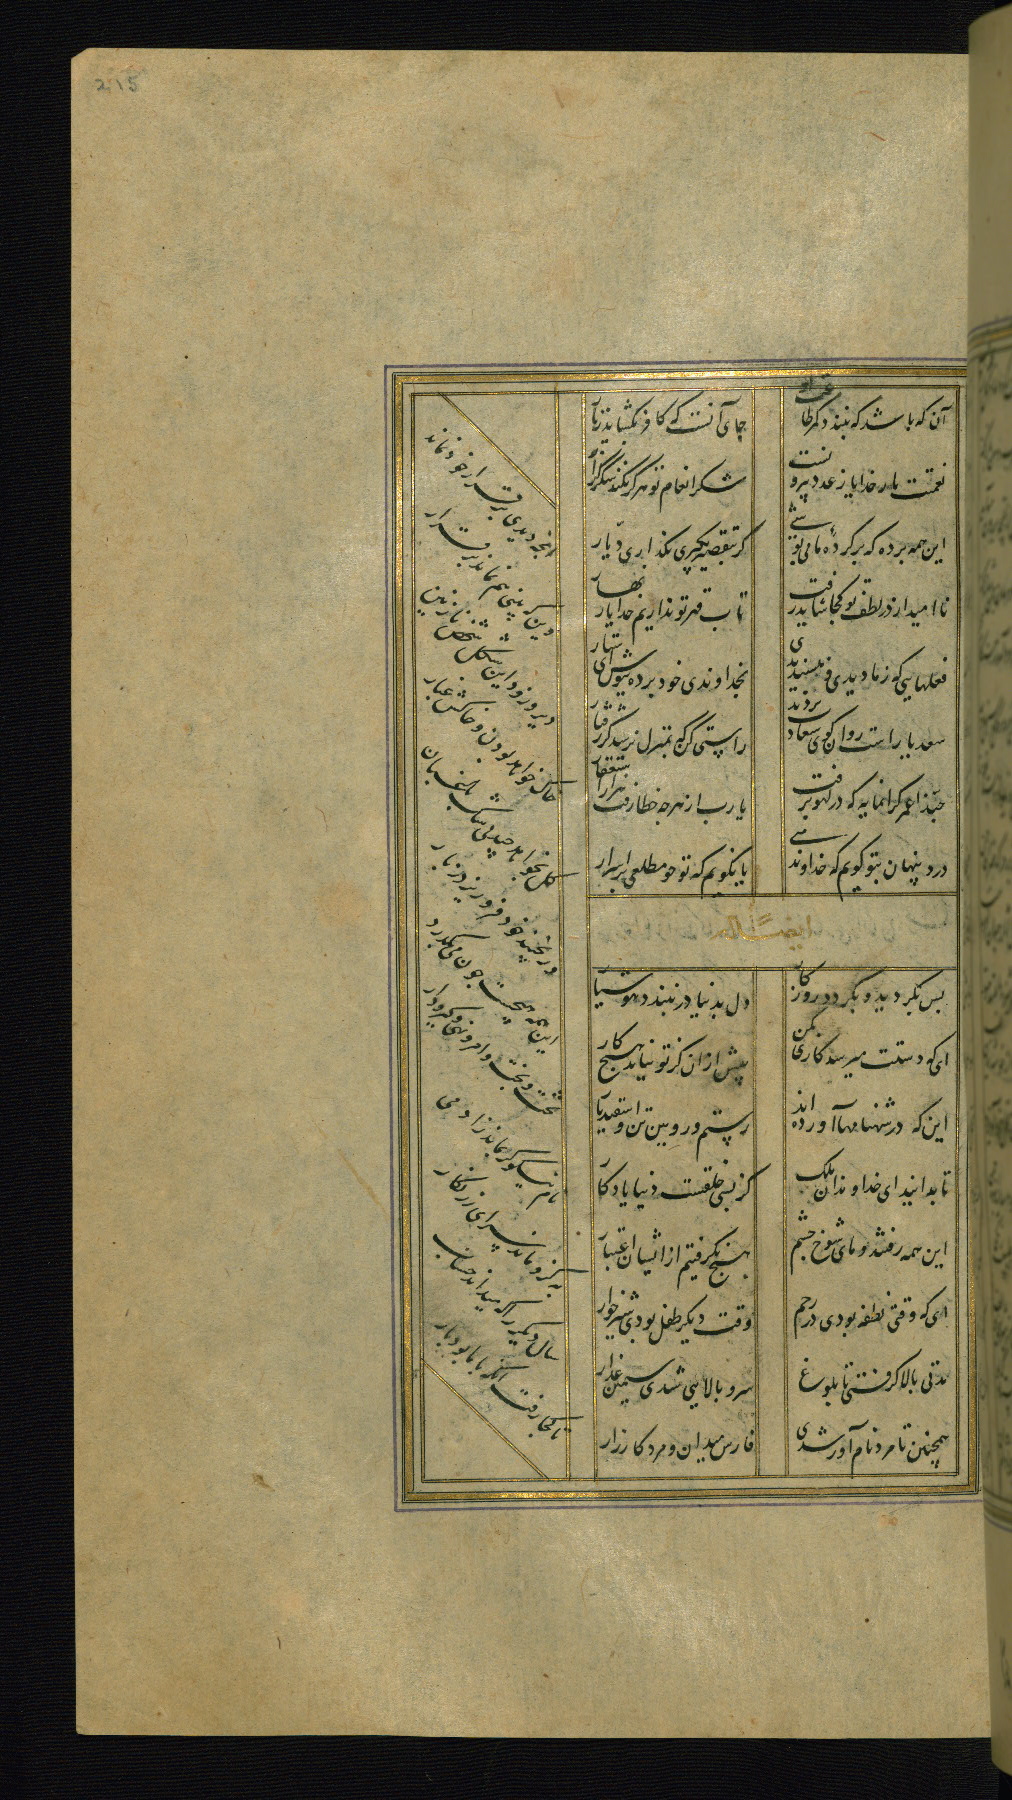 215
آن که باشد که نبندد کمر طاعت او
جای آنست که کافر بگشاید زنار
نعمتت بار خدایا ز عدد بیرونست
شکر انعام تو هرگز نکند شکرگزار
این همه پرده که بر کرده ما می پوشی
گر بتقصیر بگیری نگذاری دیار
ناامید از در لطف تو کجا شاید رفت
تاب قهر تو نداریم خدایا زنهار
فعلهایی که ز ما دیدی و نپسندیدی
بخداوندی خود پرده بپوش ای ستار
سعدیا راست روان گوی سعادت بردند
راستی کن که بمنزل نرسد کژرفتار
حبذا عمر گرانمایه که در لهو برفت
یا رب از هرچه خطا رفت هزار استغفار
درد پنهان بتو گویم که خداوند منی
یا نگویم که تو خود مطلعی بر اسرار
ایضا له
بس بگردید و بگردد روزگار
دل بدنیا در نبندد هوشیار
ای که دستت میرسد کاری بکن
پیش از آن کز تو نیاید هیچ کار
این که در شهنامها آورده اند
رستم و رویین تن و اسفندیار
تا بدانند ای خداوندان ملک
کز بسی خلقست دنیا یادگار
این همه رفتند و مای شوخ چشم
هیچ نگرفتیم از ایشان اعتبار
ای که وقتی نطفه بودی در رحم
وقت دیگر طفل بودی شیرخوار
مدتی بالا گرفتی تا بلوغ
سرو بالایی شدی سیمین عذار
همچنین تا مرد نام آور شدی
فارس میدان و مرد کارزار
آنچه دیدی برقرار خود نماند
وین که بینی هم نماند برقرار
دیر و زود این شکل و شخص نازنین
خاک خواهد بودن و خاکش غبار
گل بخواهد چید بی شک باغبان
ور نچیند خود فرو ریزد ز بار
این همه هیچست چون می بگذرد
تخت و بخت و امر و نهی و گیر و دار
نام نیکو گر بماند ز آدمی
به کزو ماند سرای زرنگار
سال دیگر را که میداند حساب
تا کجا رفت آنکه با ما بود پار